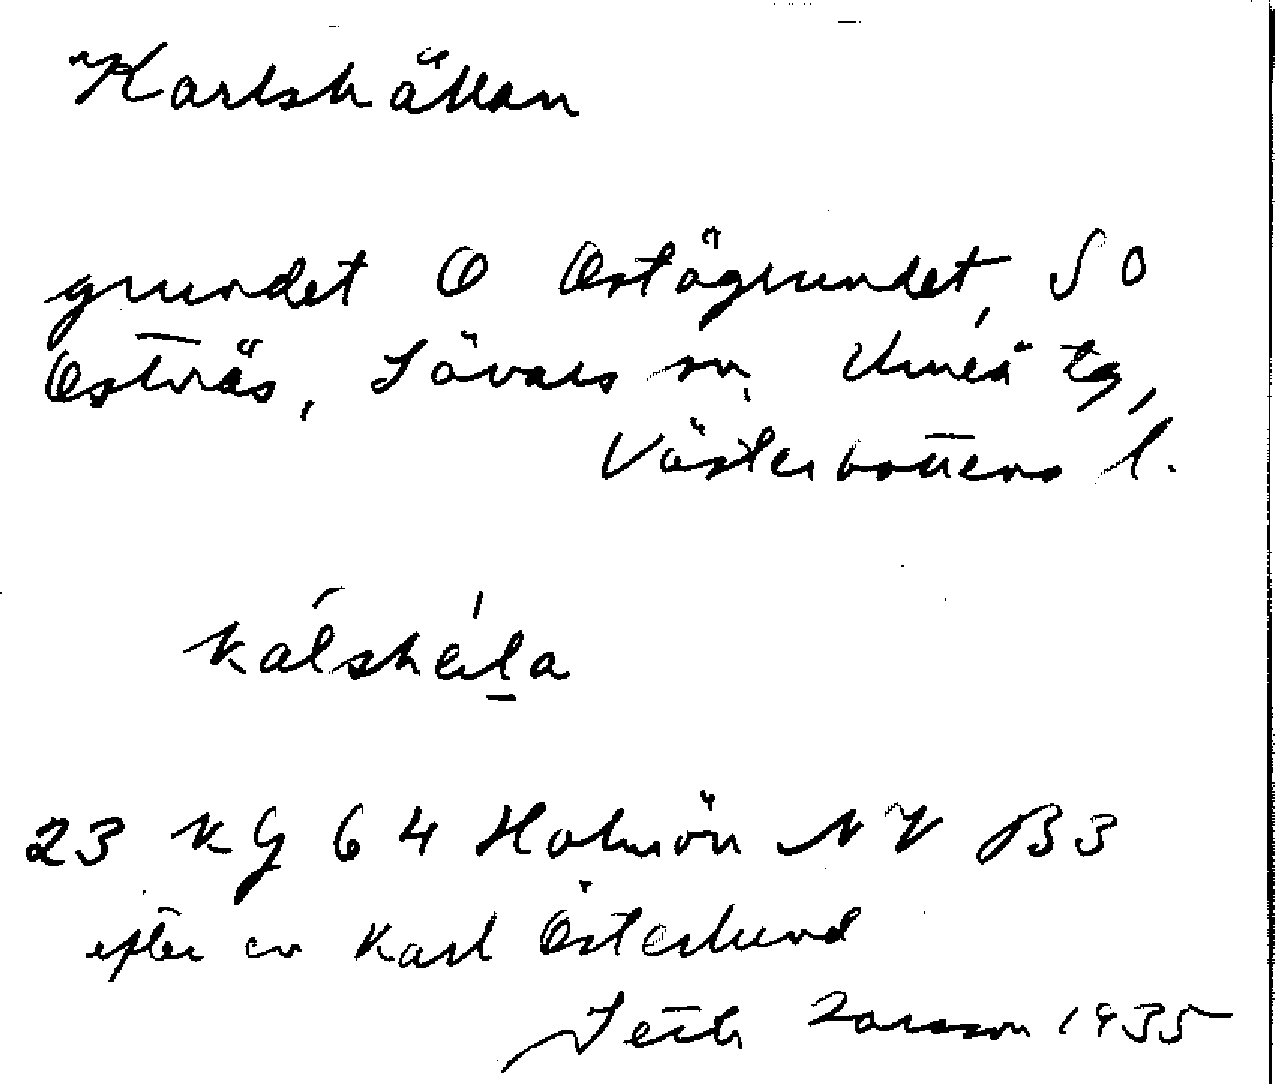 Karlskällan
grundet O Ostögrundet, SO
Ostnäs, Sävars sn, Umeå tg,
Västerbottens l.
kálskä́l̲a
23 KG 64 Holmön NV B3
efter en Karl Österlund
Seth Larsson 1935